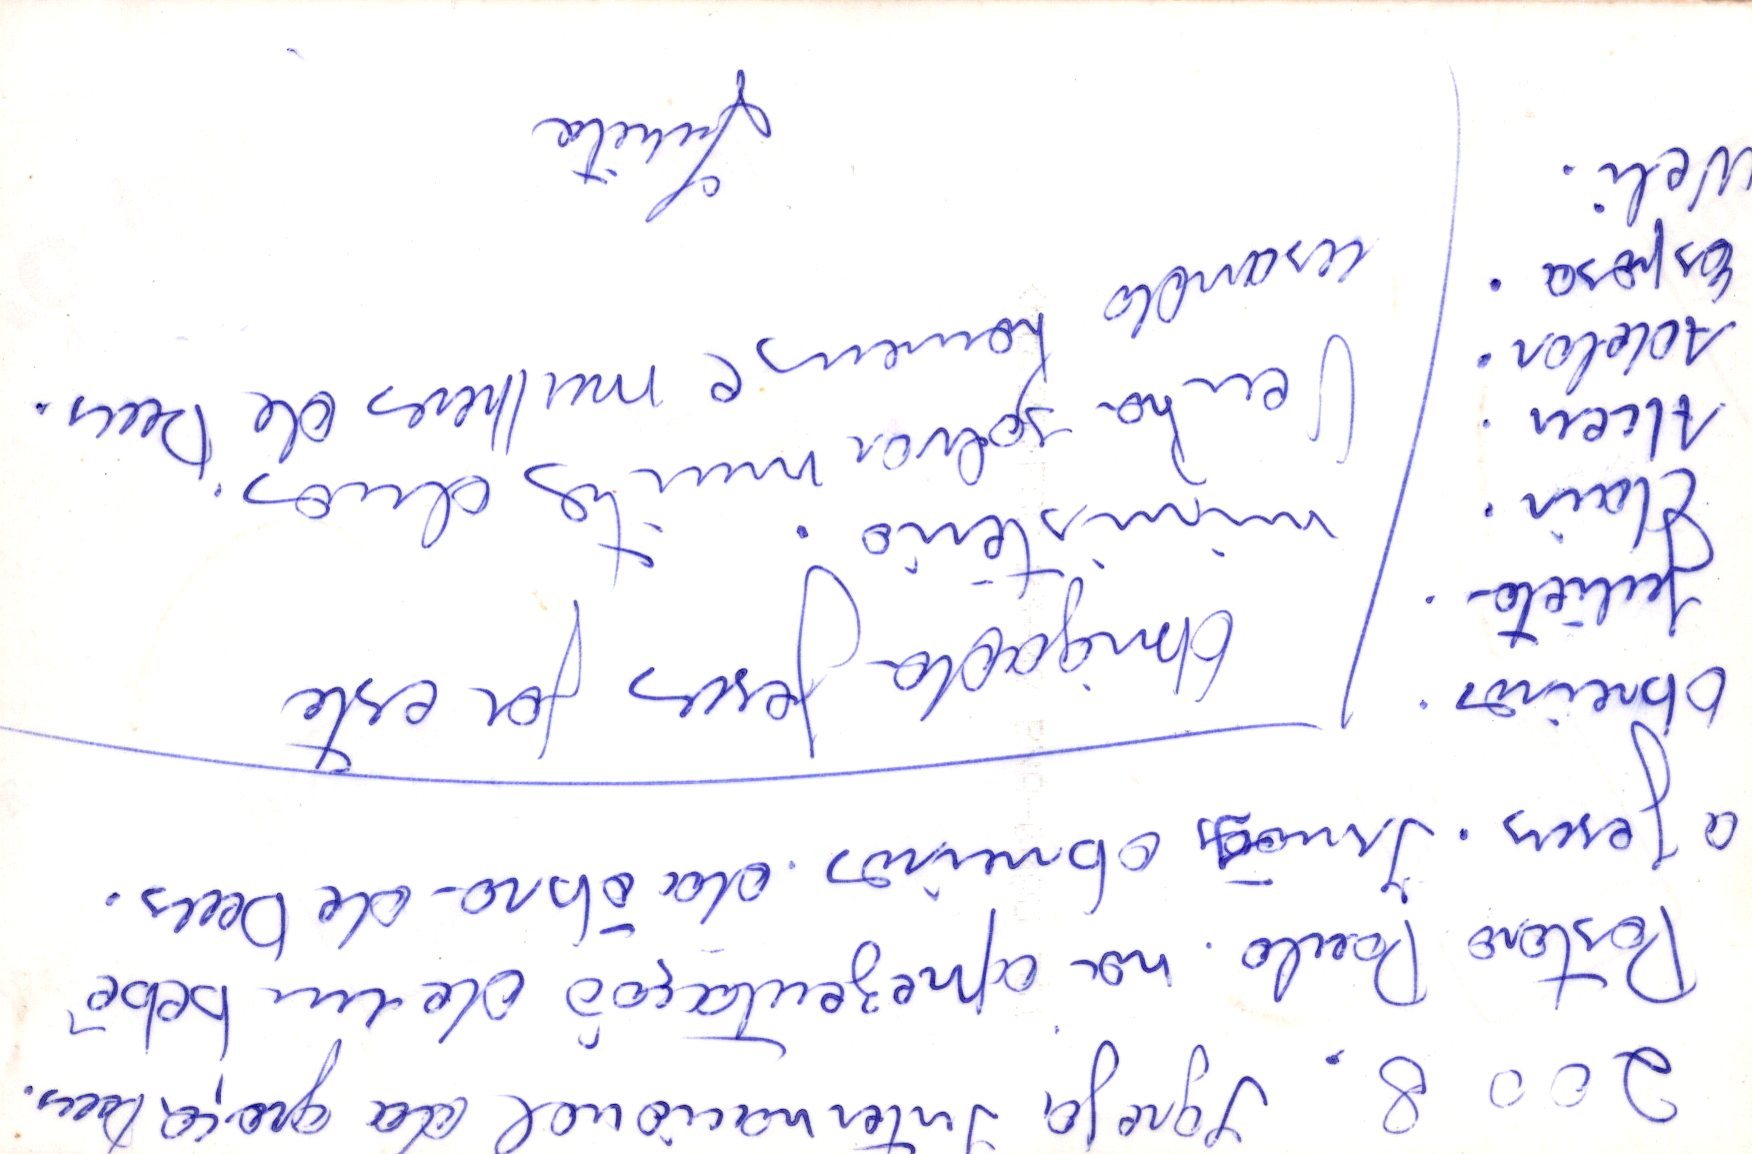 2008. Igreja Internacional da graça Deus.
Pastoro Paulo. na aprezentaçaõ de um bebê
a Jesus. Irmãos obreiros. da õbra de Deus.
Obreiros.
Julieta.
Elain.
Alceu.
Adelar.
Esposa.
Weli.
Obrigada Jesus por este
ministério.
Venha salvar muitas almas.
usando homens e mulheres de Deus.
Julieta